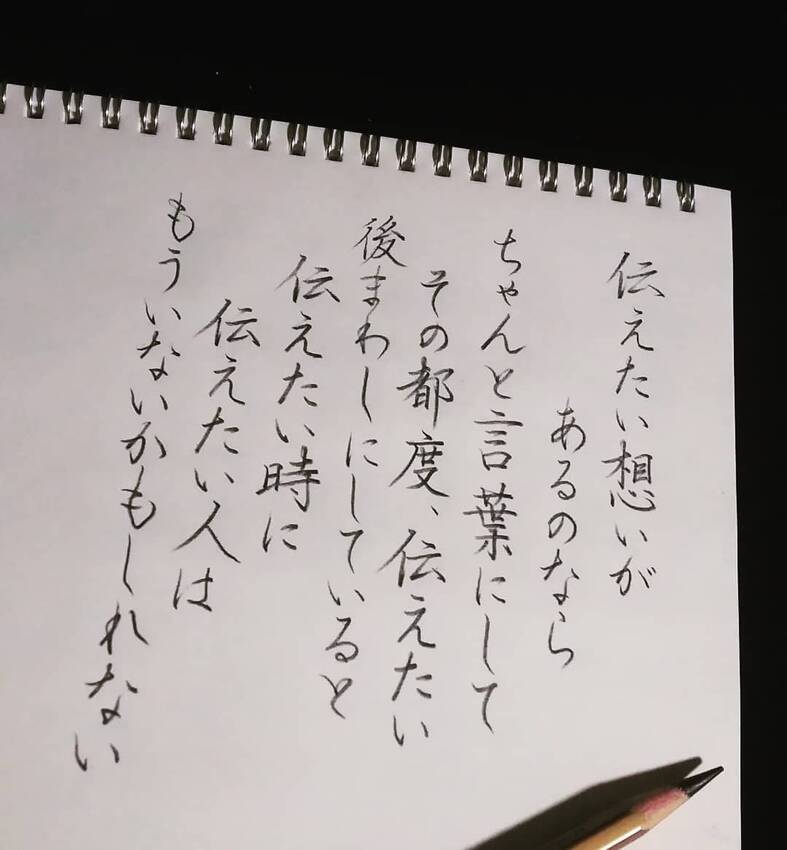 伝えたい想いが
あるのなら
ちゃんと言葉にして
その都度、伝えたい
後まわしにしていると
伝えたい時に
伝えたい人は
もういないかもしれない